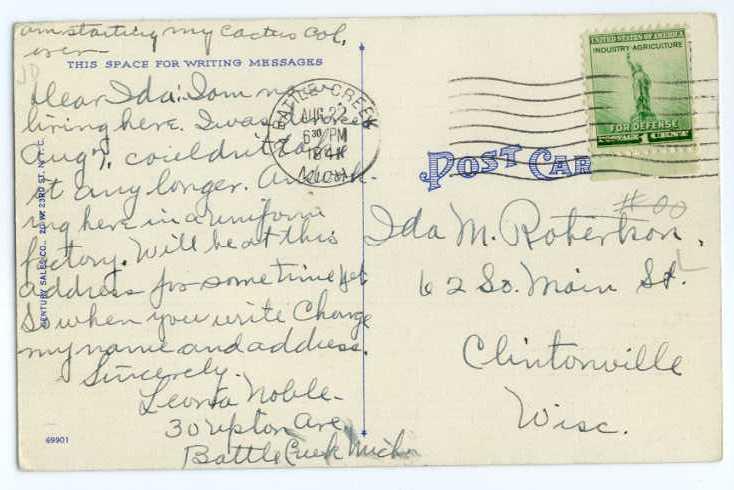 am starting my cactus col.
over
THIS SPACE FOR WRITING MESSAGES
Dear Ida: I am now
living here. I was
Aug 7, couldn't take
it any longer. Am work-
ing here in a uniform
factory. Will be at this
address for some time yet
So when you write Change
my name and address.
Sincerely.
Leona Noble-
30 Upton Ave,
Battle Creek Mich.
69901
CENTURY SALES CO., 23RD ST. N.Y.C.
BATTLE CREEK
AUG 22
6 30 PM
1941
MICH.
UNITED STATES OF AMERICA
INDUSTRY AGRICULTURE
FOR DEFENSE
POSTAGE 1 CENT
POST CAR
#00
Ida M. Robertson.
62 So. Main St.
Clintonville
Wisc.